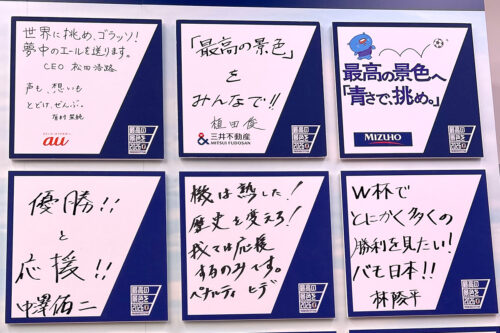 世界に挑め、ゴラッソ!
夢中のエールを送ります。
CEO 松田浩路
声も、想いも
とどけ、ぜんぶ。
au
最高の
景色を
2026
「最高の景色」
を
みんなで!!
植田俊
三井不動産
MITSUI FUDOSAN
最高の
景色を
2026
最高の景色へ
「青さで、挑め。」
MIZUHO
最高の
景色を
2026
優勝!!
と
応援!!
中澤佑二
最高の
景色を
2026
機は熟した!
歴史を変えろ!
我々は応援
するのみです。
ペナルティ ヒデ
最高の
景色を
2026
W杯で
とにかく多くの
勝利を見たい!
バモ日本!!
林陵平
最高の
景色を
2026